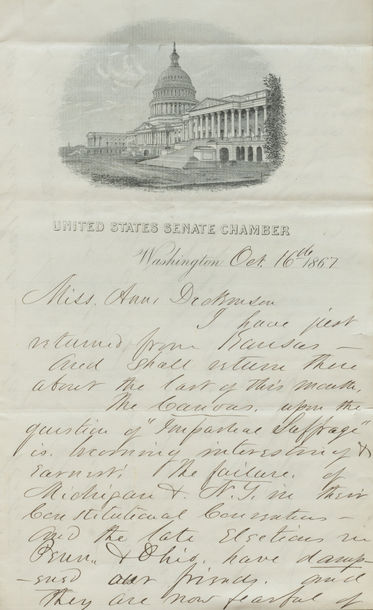 UNITED STATES SENATE CHAMBER
Washington Oct. 16th 1867
Miss. Anna Dickinson
I have just
returned from Kansas –
and shall return there
about the last of this month.
The Canvas, upon the
question of "Impartial Suffrage"
is, interesting &
Earnest. The failure, of
Michigan & N.Y. in their
Constitutional Conventions –
and the late Elections in
Penn. & Ohio, have damp-
-ened our friends, and
they are now fearful of